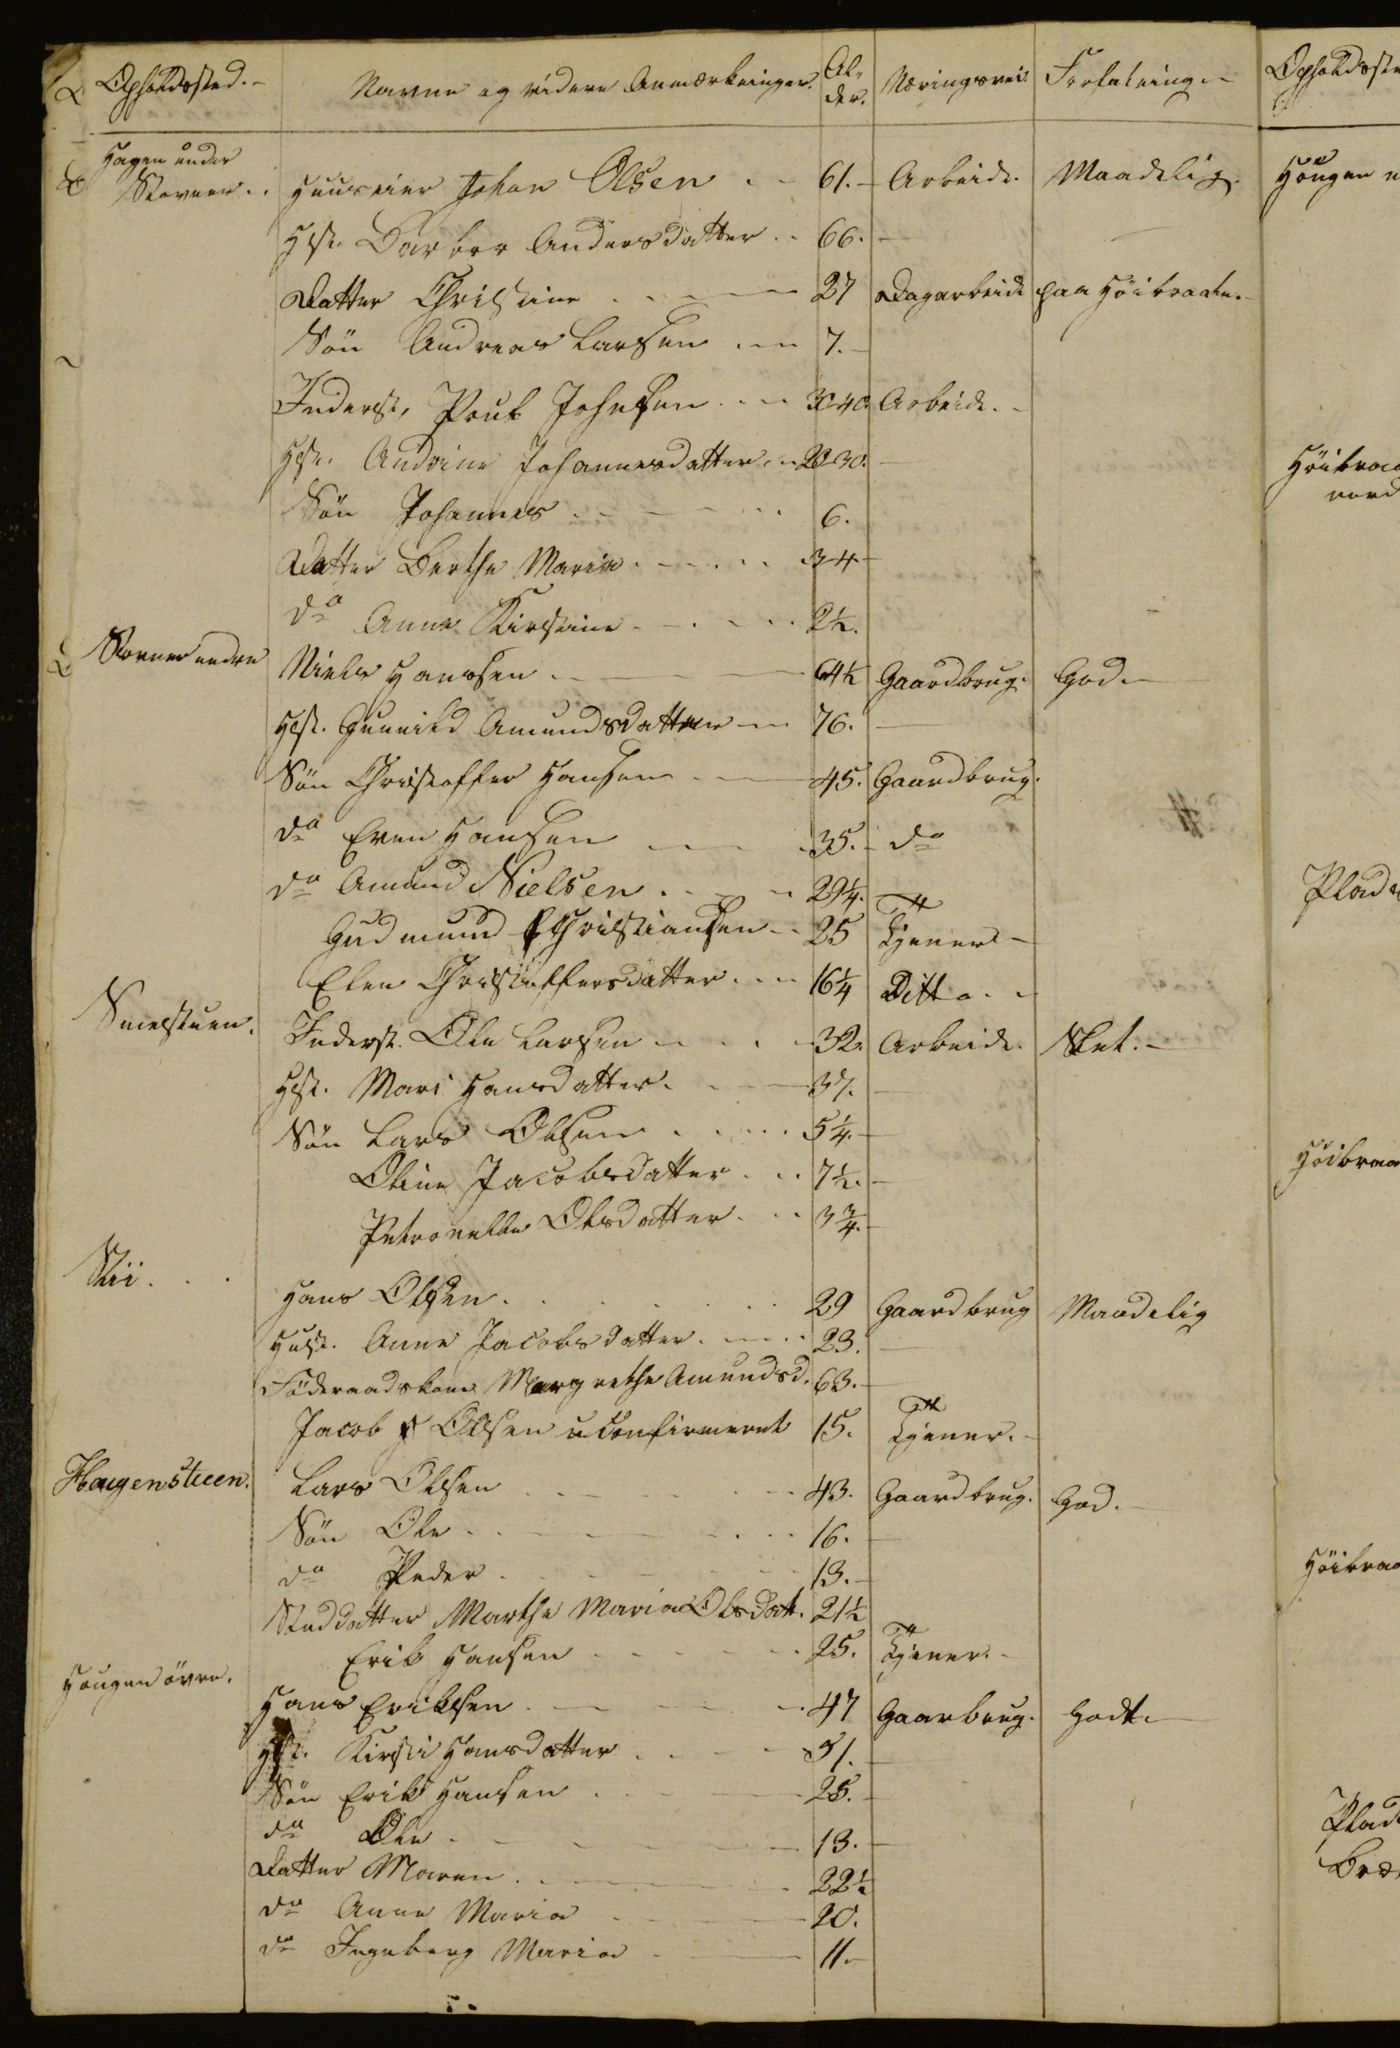 Opholdssted. Navne og videre Anmærkninger. Al-der. Næringsvei Forfatning
Hagen under
Stovner. Huuseier Johan Olsen 61. Arbeide. Maadelig.
Hst. Barber Andersdatter 66.
Datter Christine 27 Dagarbeide paa Höibraaten.
Sön Andreas Larsen 7.
Inderst, Poul Johnsen 40 Arbeide.
Hst. Andrine Johannesdatter 30.
Sön Johannes 6.
Datter Berthe Maria 4
do Anne Kirstine 2½.
Stovner nedre Niels Hanssen 64½ Gaardbrug. God.
Hst. Gunild Amundsdatter 76.
Sön Christoffer Hansen 45. Gaardbrug.
do Even Hansen 35. do
do Amund Nielsen 29¼.
Gudmund Christiansen 25 Tjener
Elen Christoffersdatter 16¼ Ditto.
Smedstuen. Inderst. Ole Larsen 32. Arbeide. Slet.
Hst. Mari Hansdatter 37.
Sön Lars Olsen 5¼.
Oline Jacobsdatter 7½.
Petronelle Olsdatter 3¾.
Hans Olsen 29 Gaardbrug Maadelig
Hust. Anne Jacobsdatter 23.
Föderaadskone Margrethe Amundsd. 63.
Jacob Olsen uconfirmeret 15. Tjener.
Haugenstuen. Lars Olsen 43. Gaardbrug. God.
Sön Ole 16.
do Peder 13.
Steddatter Marthe Maria Olsdatt. 21½
Erik Hansen 25. Tjener.
Hougen övre. Hans Eriksen 47 Gaarbrug. Godt.
Hst. Kirsti Hansdatter 51.
Sön Erik Hansen 25.
do Ole 13.
Datter Maren 22½
do Anne Maria 20.
do Ingeborg Maria 11.